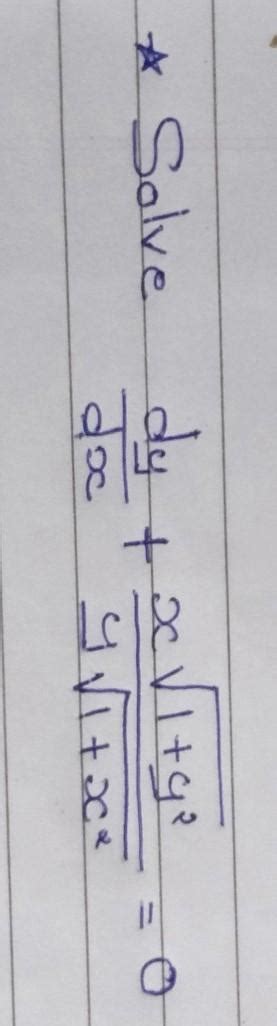 ☆ Solve dy/dx + x√(1+y²) / y√(1+x²) = 0